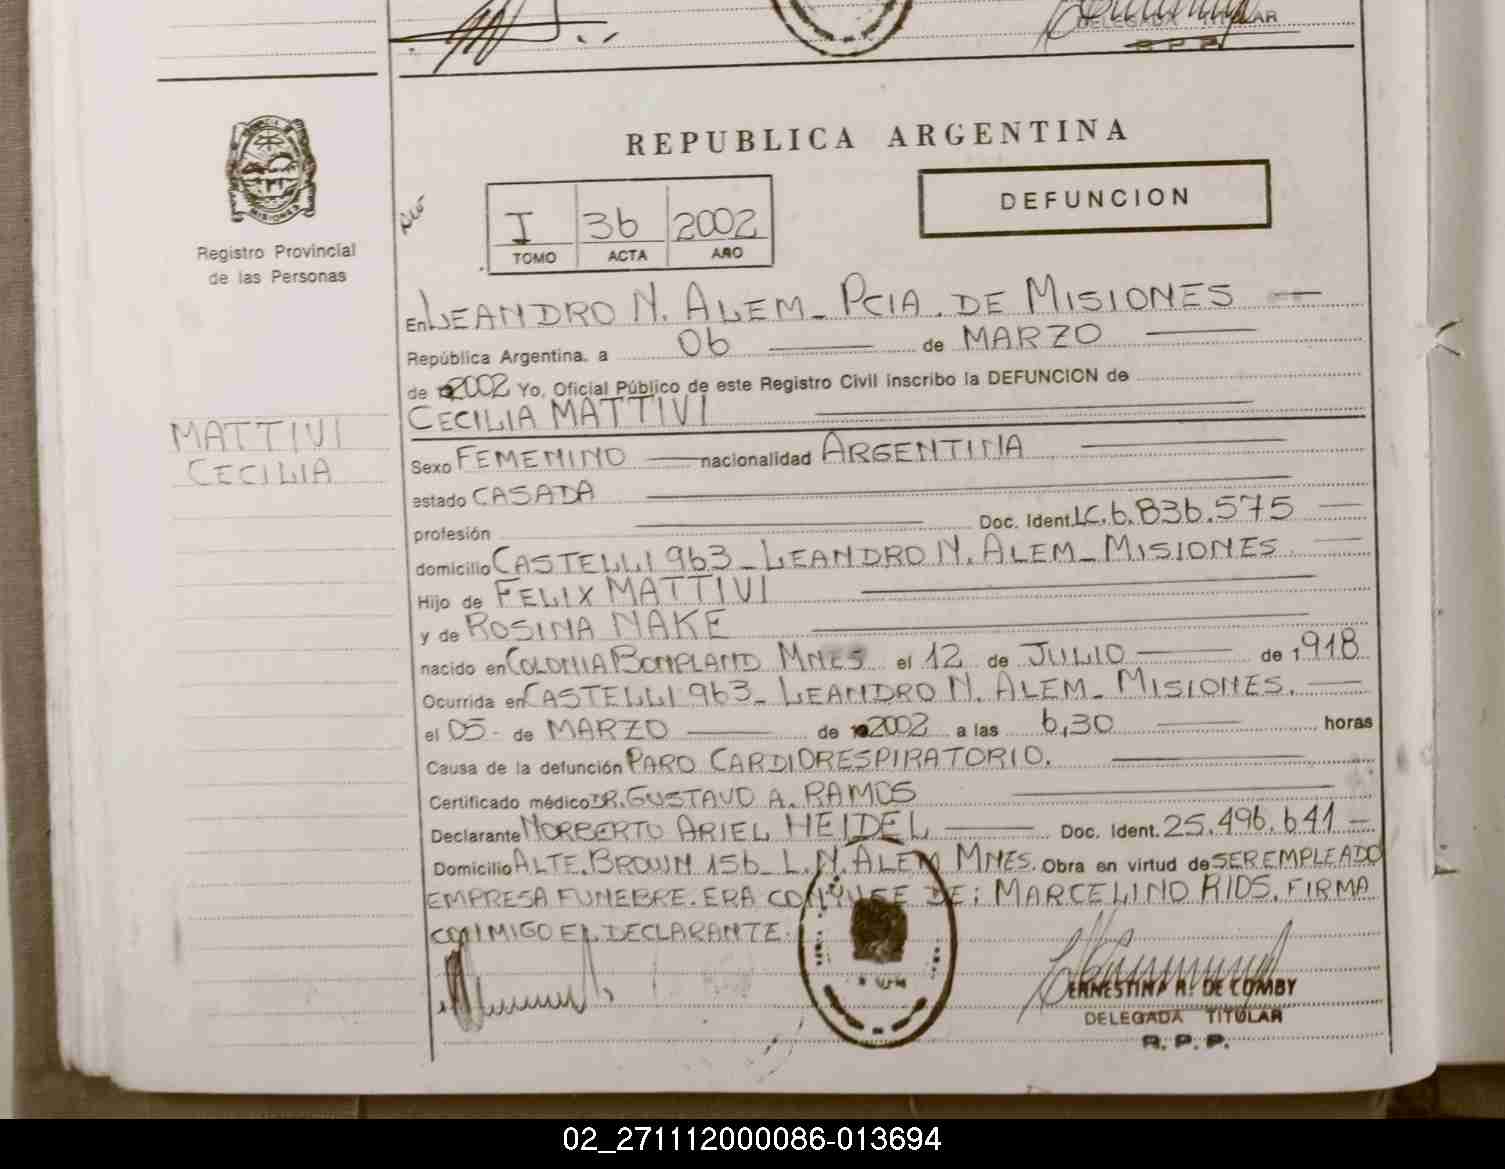 DELEGADA TITULAR
R. P. P.
REPUBLICA ARGENTINA
DEFUNCION
I 36 2002
TOMO ACTA AÑO
MISIONES
Registro Provincial
de las Personas
En LEANDRO N. ALEM_ PCIA. DE MISIONES
República Argentina, a 06 de MARZO
de 2002 Yo, Oficial Público de este Registro Civil inscribo la DEFUNCION de
CECILIA MATTIVI
MATTIVI
CECILIA
Sexo FEMENINO nacionalidad ARGENTINA
estado CASADA
profesión Doc. Ident. LC. 6.836.575
domicilio CASTELLI 963_ LEANDRO N. ALEM_ MISIONES
Hijo de FELIX MATTIVI
y de ROSINA NAKE
nacido en COLONIA BONPLAND MNES el 12 de JULIO de 1918
Ocurrida en CASTELLI 963_ LEANDRO N. ALEM_ MISIONES.
el 05- de MARZO de 2002 a las 6,30 horas
Causa de la defunción PARO CARDIORESPIRATORIO.
Certificado médico DR. GUSTAVO A. RAMOS
Declarante NORBERTO ARIEL HEIDEL Doc. Ident. 25.496.641
Domicilio ALTE. BROWN 156_ L.N. ALEM MNES. Obra en virtud de SER EMPLEADO
EMPRESA FUNEBRE. ERA CONYUGE DE: MARCELINO RIOS. FIRMA
CONMIGO EL DECLARANTE.
ERNESTINA R. DE COMBY
DELEGADA TITULAR
R. P. P.
02_271112000086-013694